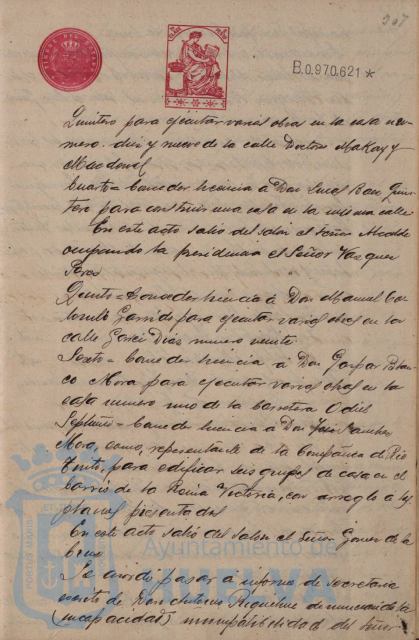 307
B.0.970.621*
Quintero para ejecutar varias obras en la casa nú-
mero diez y nueve de la calle Doctores MaKay y
Macdonal
Cuarto = Conceder licencia á Don Lucas Ban Quin-
tero para construir una casa en la misma calle
En este acto salió del salón el Señor Alcalde
ocupando la presidencia el Señor Vazquez
Perez
Quinto = Conceder licencia á Don Manuel
Garrido para ejecutar varias obras en la
calle Garci Diaz numero veinte
Sexto = Conceder licencia á Don Gaspar Blan-
co Mora para ejecutar varias obras en la
casa numero uno de la Carretera Odiel
Septimo = Conceder licencia á Don
Mora, como representante de la Compañia de Rio
Tinto, para edificar seis grupos de casa en el
barrio de la Reina Victoria, con arreglo á los
planos presentados
En este acto salió del salon el Señor Gomez de la
Ayuntamiento de
HUELVA
Se acordó pasar a informe de secretaria
escrito de Don Antonio Riquelme denunciando la
(incapacidad) incompatibilidad del Señor